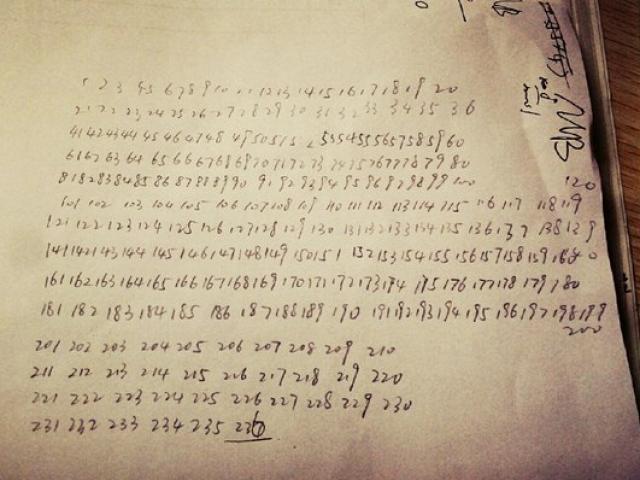 1 2 3 4 5 6 7 8 9 10 11 12 13 14 15 16 17 18 19 20
21 22 23 24 25 26 27 28 29 30 31 32 33 34 35 36
41 42 43 44 45 46 47 48 49 50 51 52 53 54 55 56 57 58 59 60
61 62 63 64 65 66 67 68 69 70 71 72 73 74 75 76 77 78 79 80
81 82 83 84 85 86 87 88 89 90 91 92 93 94 95 96 97 98 99 100
101 102 103 104 105 106 107 108 109 110 111 112 113 114 115 116 117 118 119 120
121 122 123 124 125 126 127 128 129 130 131 132 133 134 135 136 137 138 139
141 142 143 144 145 146 147 148 149 150 151 152 153 154 155 156 157 158 159 160
161 162 163 164 165 166 167 168 169 170 171 172 173 174 175 176 177 178 179 180
181 182 183 184 185 186 187 188 189 190 191 192 193 194 195 196 197 198 199 200
201 202 203 204 205 206 207 208 209 210
211 212 213 214 215 216 217 218 219 220
221 222 223 224 225 226 227 228 229 230
231 232 233 234 235 236